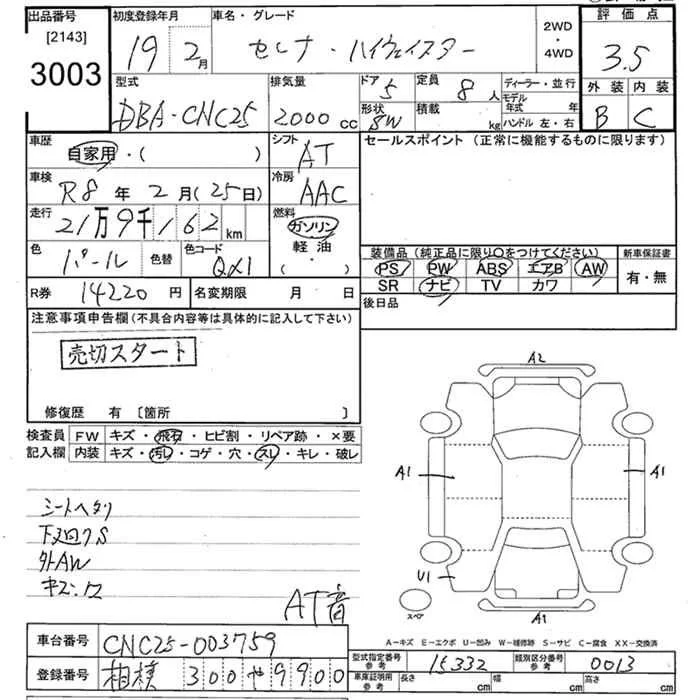 出品番号 初度登録年月 車名・グレード 2WD・4WD 評価点
[2143]
3003 19年2月 セレナ・ハイウェイスター 3.5
型式 排気量 ドア 5 定員 8人 ディーラー・並行 外装 内装
DBA-CNC25 2000cc 形状 SW 積載 kg モデル年式 年 ハンドル 左・右 B C
車歴 自家用・( ) シフト AT セールスポイント (正常に機能するものに限ります)
車検 R8年2月(25日) 冷房 AAC
走行 21万9千162km 燃料 ガソリン 軽油 ( ・ )
色 パール 色替 色コード QX1 装備品(純正品に限り○をつけてください) 新車保証書
PS PW ABS エアB AW 有・無
SR ナビ TV カワ
R券 14220円 名変期限 月 日 後日品
注意事項申告欄(不具合内容等は具体的に記入して下さい)
売切スタート
修復歴 有 [箇所 ]
検査員 FW キズ・飛石・ヒビ割・リペア跡・×要
記入欄 内装 キズ・汚レ・コゲ・穴・スレ・キレ・破レ
シートヘタリ
下廻りS
外AW
キズ・凹
AT音
A2
A1 A1
U1
スペア
A1
A-キズ E-エクボ U-凹み W-補修跡 S-サビ C-腐食 XX-交換済
車台番号 CNC25-003759
登録番号 相模 300 や 9900
型式指定番号 参考 15332 類別区分番号 参考 0013
車庫証明用 参考 長さ cm 幅 cm 高さ cm